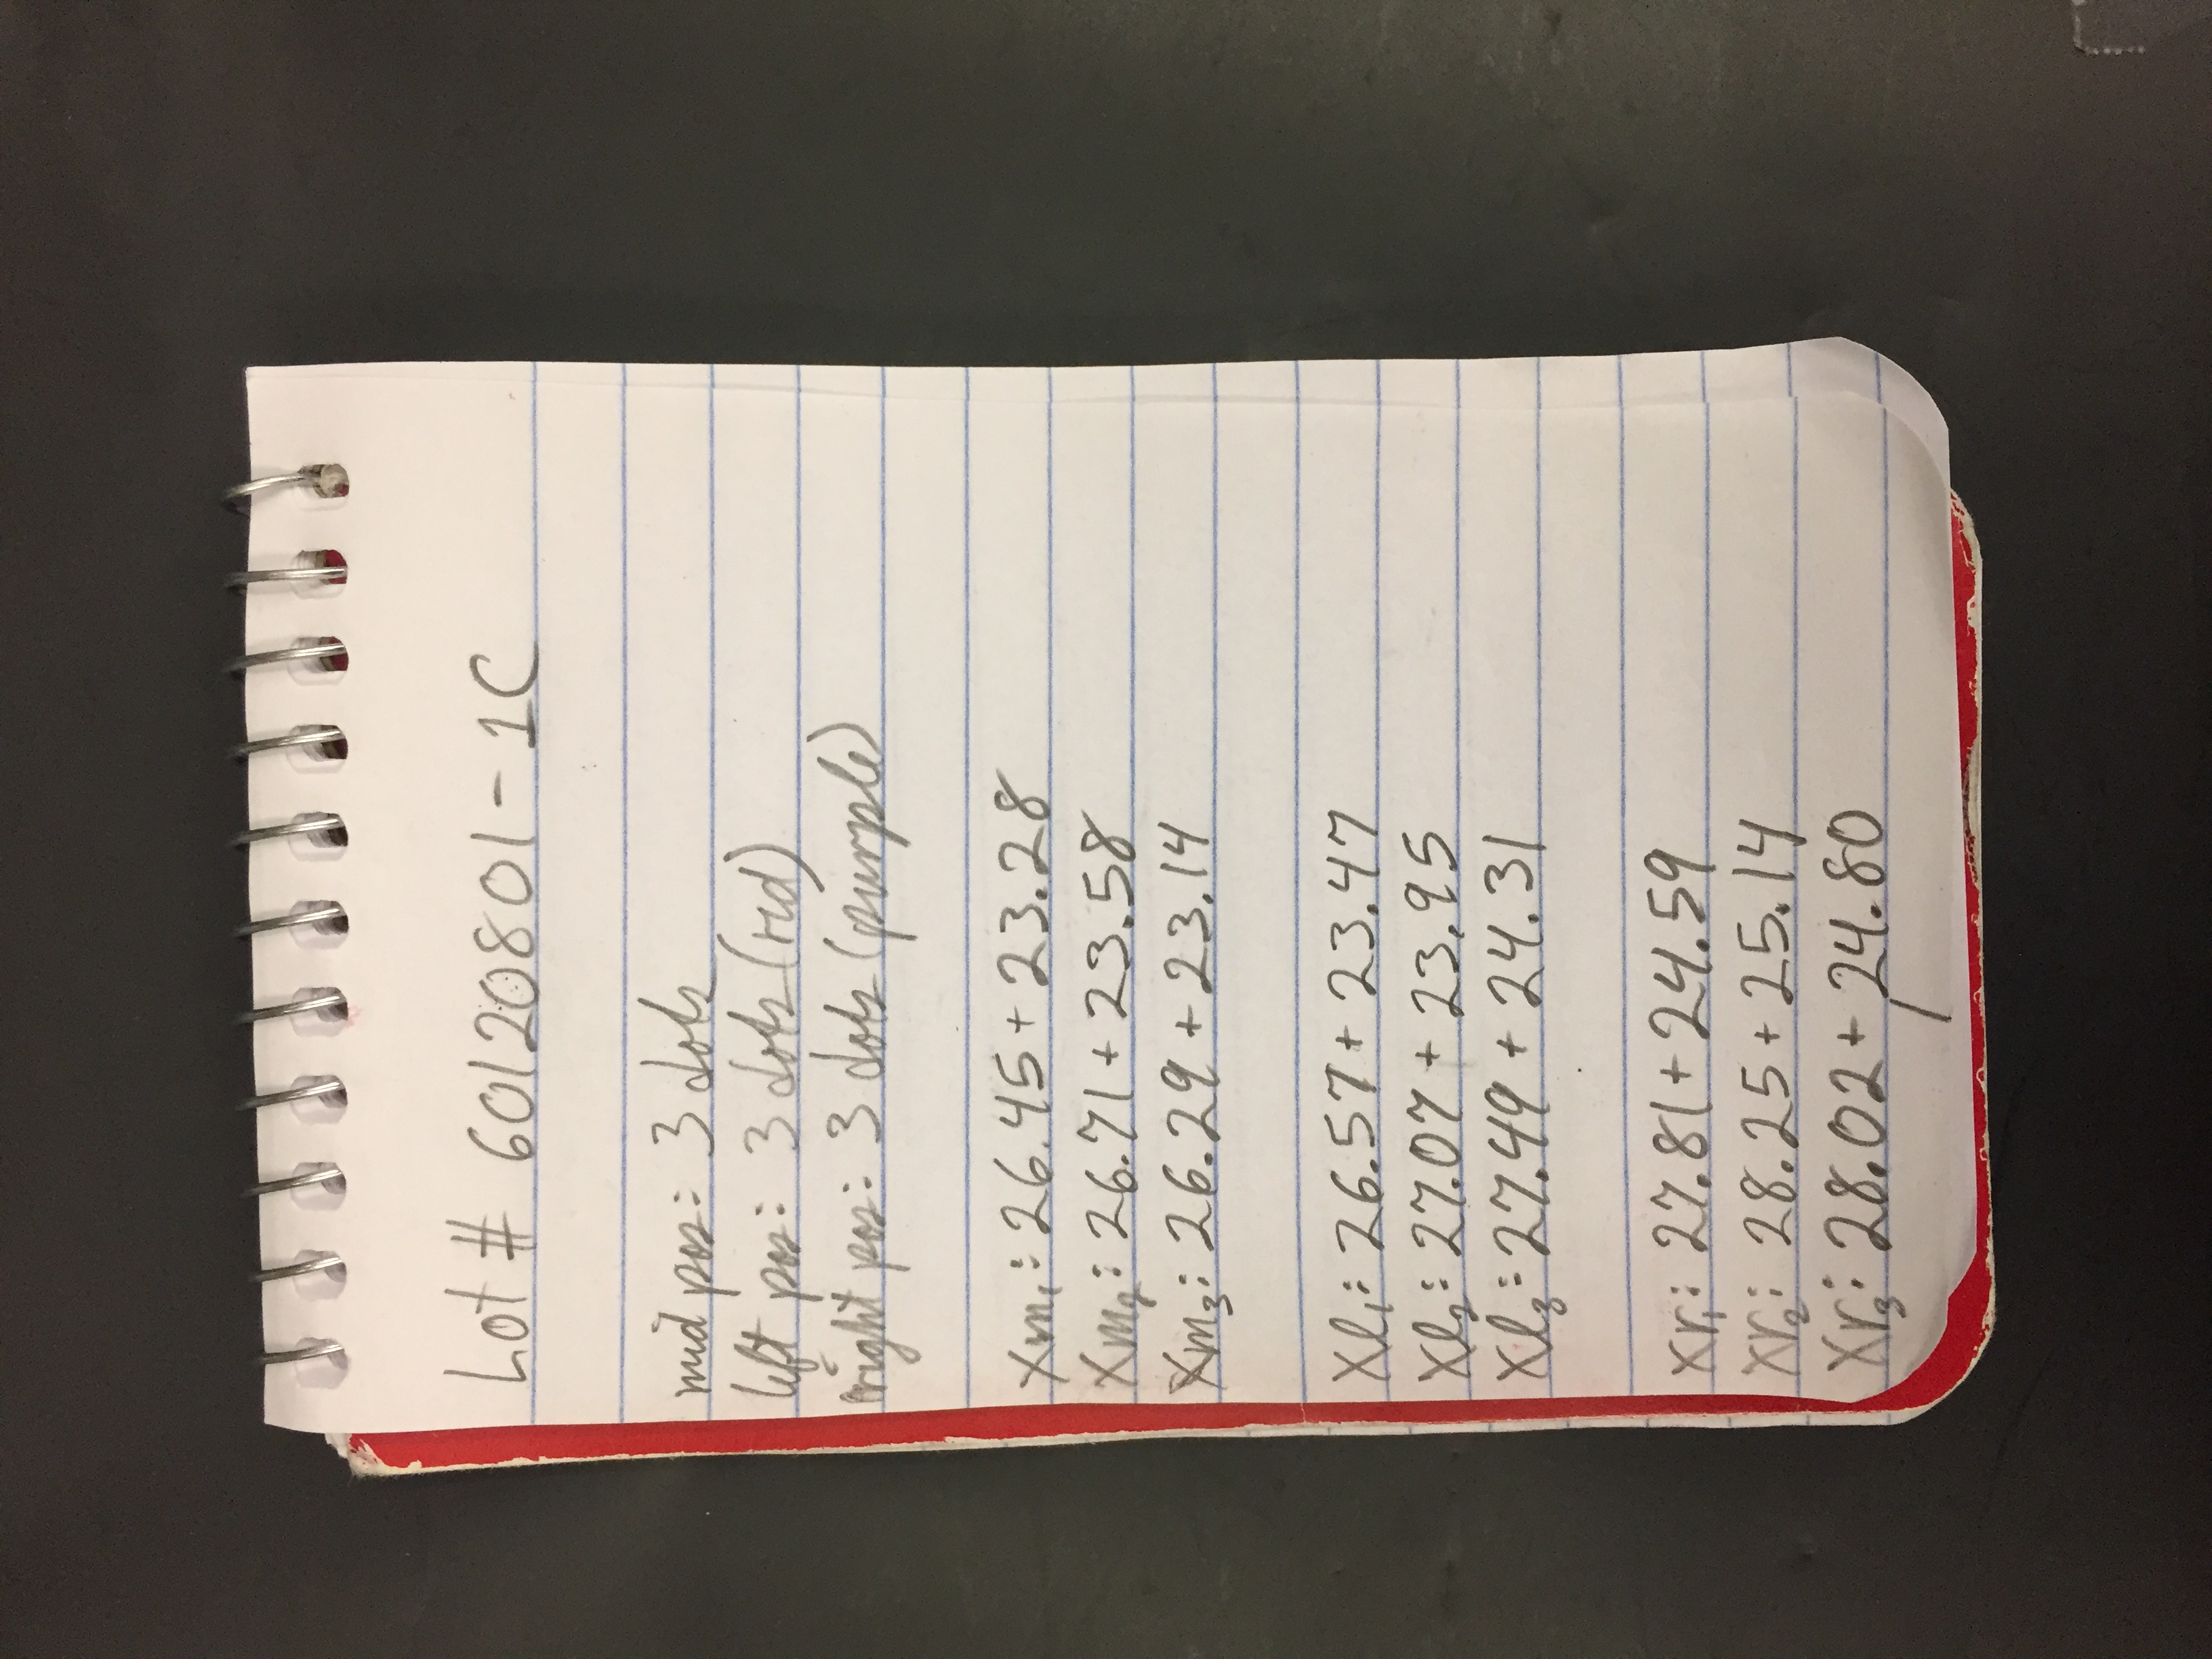 Lot # 60120801-1C
mid pos: 3 dots
left pos: 3 dots (red)
right pos: 3 dots (purple)
Xm₁: 26.45 + 23.28
Xm₂: 26.71 + 23.58
Xm₃: 26.29 + 23.14
Xl₁: 26.57 + 23.47
Xl₂: 27.07 + 23.95
Xl₃: 27.49 + 24.31
Xr₁: 27.81 + 24.59
Xr₂: 28.25 + 25.14
Xr₃: 28.02 + 24.80